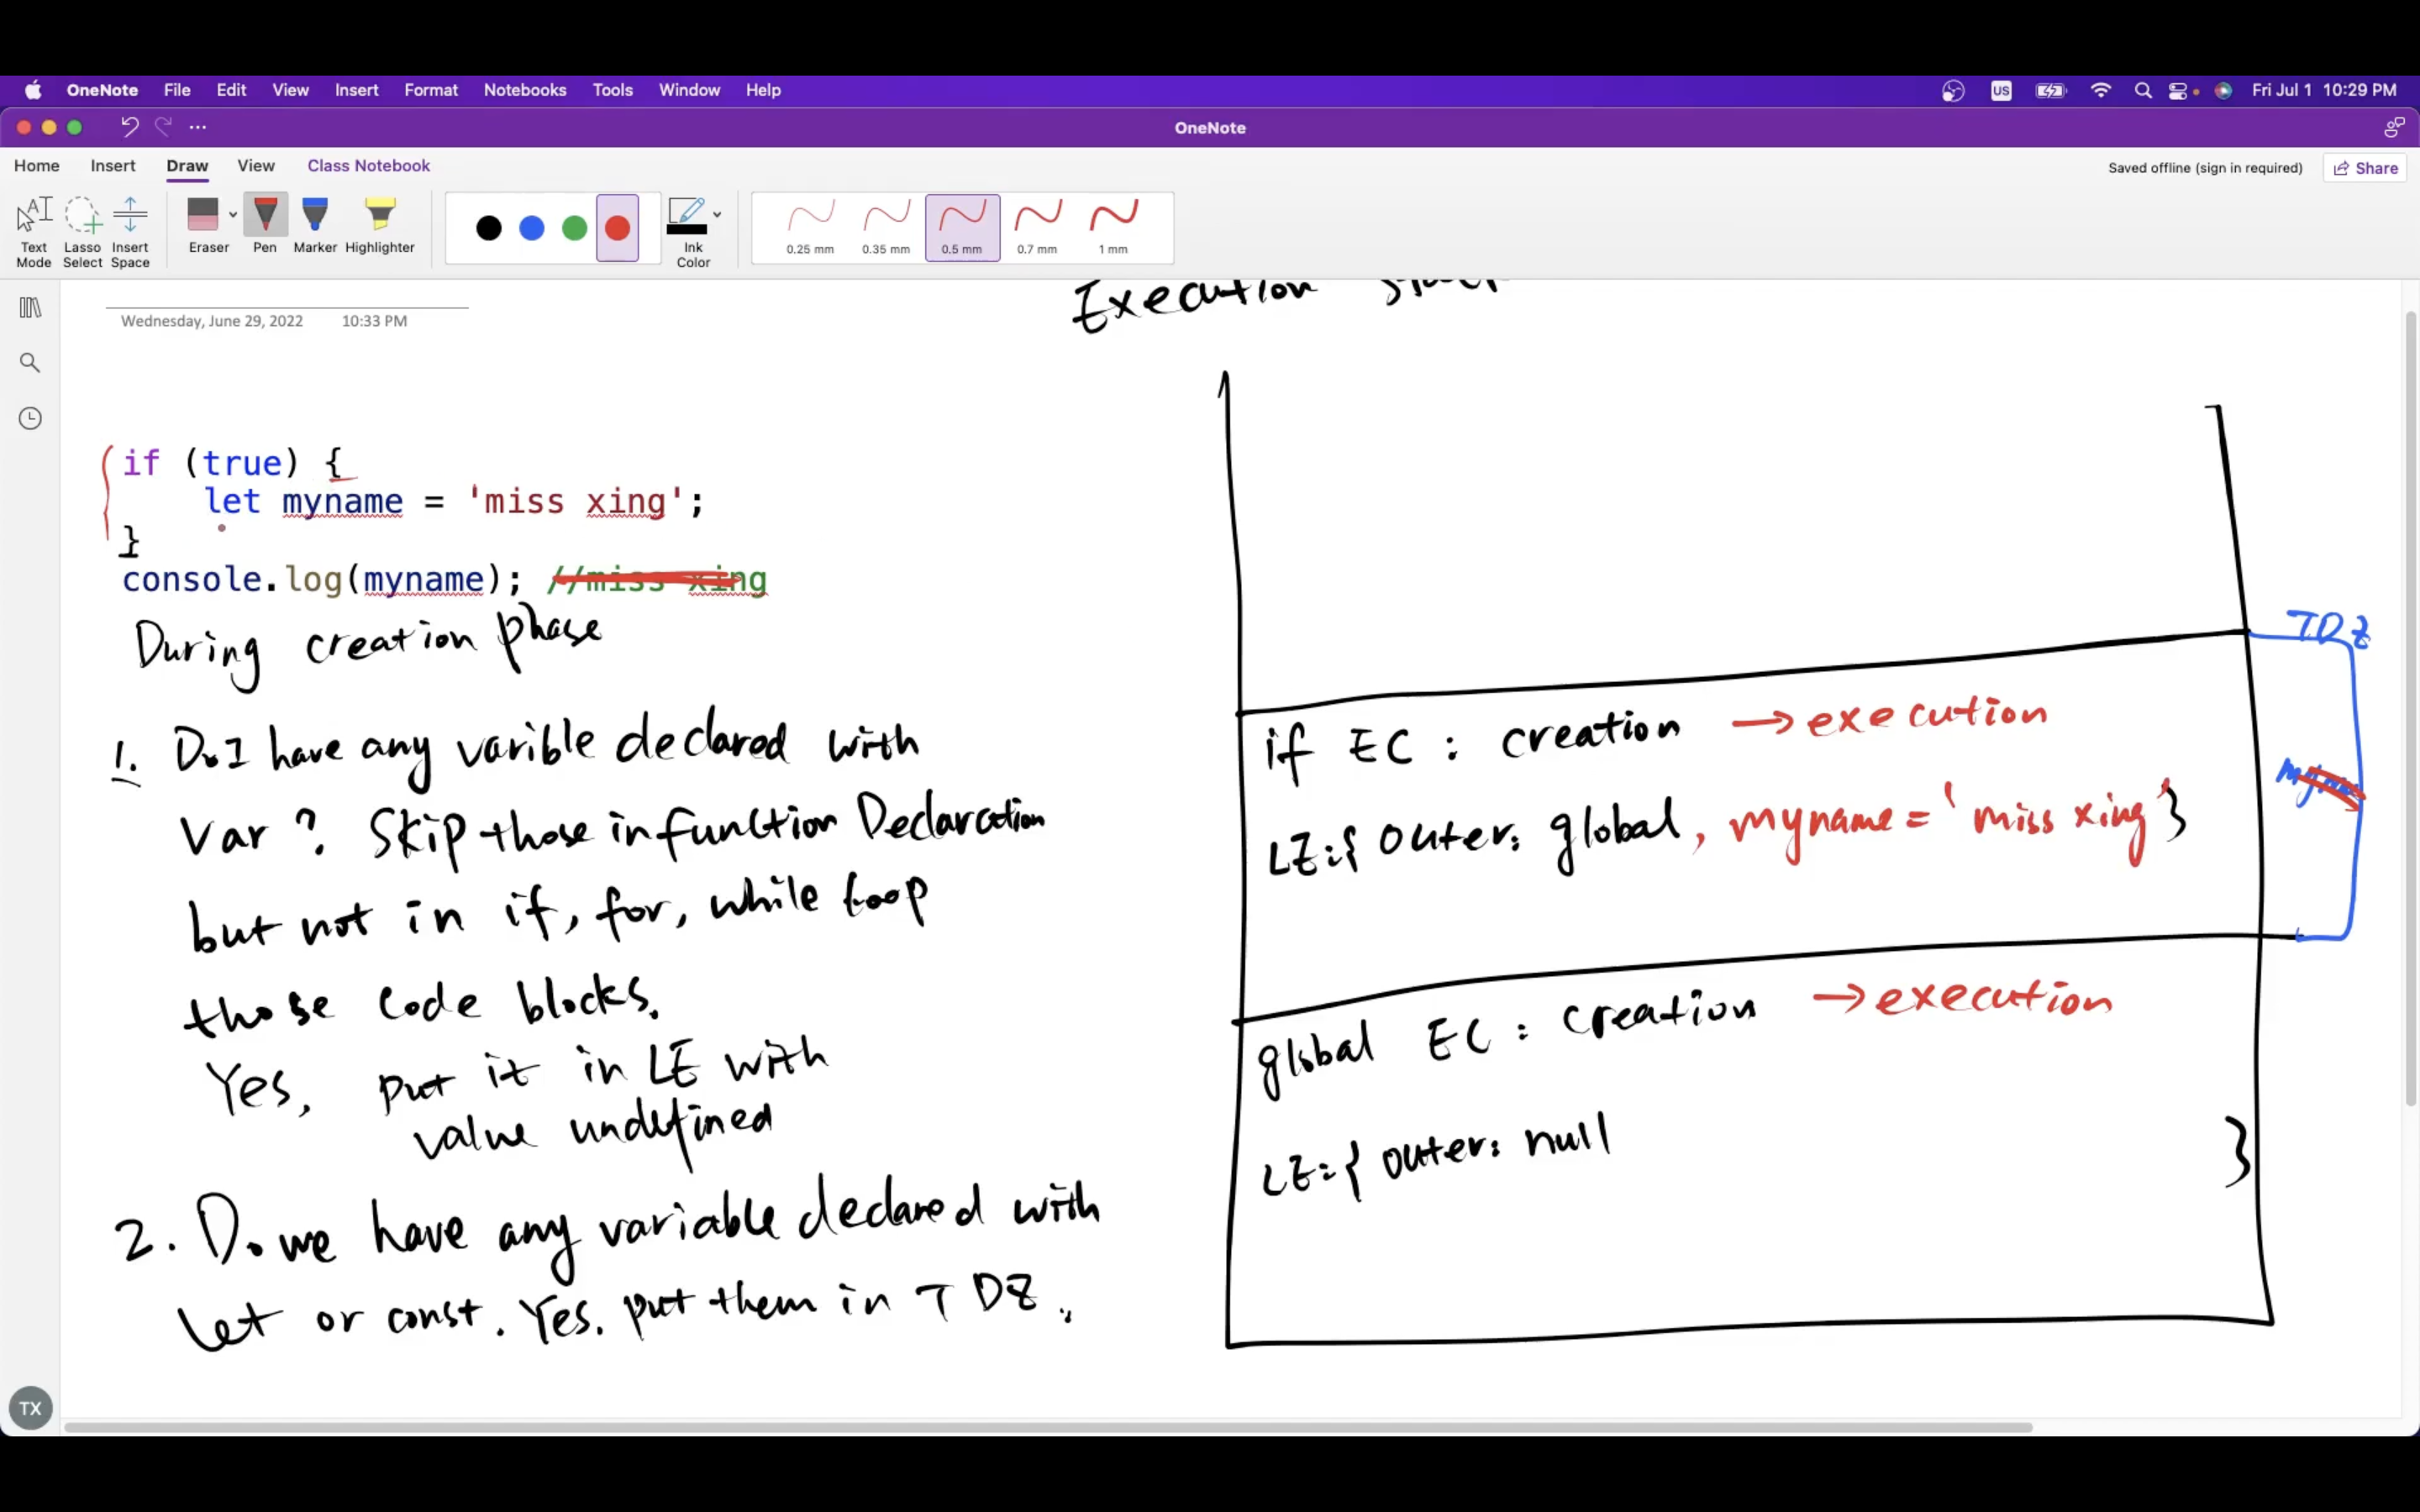 OneNote File Edit View Insert Format Notebooks Tools Window Help US Fri Jul 1 10:29 PM
OneNote
Home Insert Draw View Class Notebook Saved offline (sign in required) Share
Text Mode Lasso Select Insert Space Eraser Pen Marker Highlighter Ink Color 0.25 mm 0.35 mm 0.5 mm 0.7 mm 1 mm
Wednesday, June 29, 2022 10:33 PM
if (true) {
let myname = 'miss xing';
}
console.log(myname); //miss xing
During creation phase
1. Do I have any varible declared with
var ? Skip those in function Declaration
but not in if, for, while loop
those code blocks.
Yes, put it in LE with
value undefined
2. Do we have any variable declared with
let or const. Yes. put them in TDZ.
TX
Execution
TDZ
if EC : creation → execution
LE:{ outer: global, myname = 'miss xing' }
global EC : creation → execution
LE:{ outer: null }